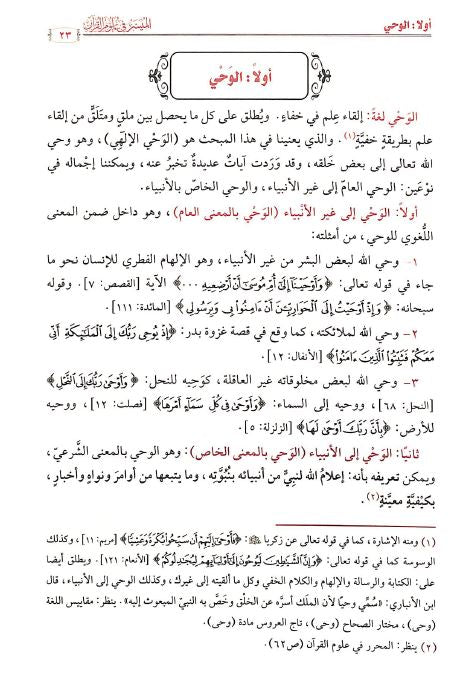 أولاً: الوحي
الميسر في علوم القرآن
٢٣
أولاً: الوَحْي
الوَحْي لغةً: إلقاء عِلم في خفاءٍ. ويُطلق على كل ما يحصل بين ملقٍ ومتَلَقٍّ من إلقاء
علم بطريقةٍ خفيَّةٍ(١). والذي يعنينا في هذا المبحث هو (الوَحْي الإلٰهي)، وهو وحي
الله تعالى إلى بعض خَلقه، وقد وَرَدت آياتٌ عديدةٌ تخبرُ عنه، ويمكننا إجماله في
نوْعَين: الوحي العامّ إلى غير الأنبياء، والوحي الخاصّ بالأنبياء.
أولاً: الوَحْي إلى غير الأنْبياء (الوَحْي بالمعنى العام)، وهو داخل ضمن المعنى
اللُّغوي للوحي، من أمثلته:
١- وحي الله لبعض البشر من غير الأنبياء، وهو الإلهام الفطري للإنسان نحو ما
جاء في قوله تعالى: ﴿وَأَوْحَيْنَآ إِلَىٰٓ أُمِّ مُوسَىٰٓ أَنْ أَرْضِعِيهِ ...﴾ الآية [القصص: ٧]. وقوله
سبحانه: ﴿وَإِذْ أَوْحَيْتُ إِلَى ٱلْحَوَارِيِّـۧنَ أَنْ ءَامِنُوا۟ بِى وَبِرَسُولِى﴾ [المائدة: ١١١].
٢- وحي الله لملائكته، كما وقع في قصة غزوة بدر: ﴿إِذْ يُوحِى رَبُّكَ إِلَى ٱلْمَلَـٰٓئِكَةِ أَنِّى
مَعَكُمْ فَثَبِّتُوا۟ ٱلَّذِينَ ءَامَنُوا۟﴾ [الأنفال: ١٢].
٣- وحي الله لبعض مخلوقاته غير العاقلة، كوَحِيه للنحل: ﴿وَأَوْحَىٰ رَبُّكَ إِلَى ٱلنَّحْلِ﴾
[النحل: ٦٨]، ووحيه إلى السماء: ﴿وَأَوْحَىٰ فِى كُلِّ سَمَآءٍ أَمْرَهَا﴾ [فصلت: ١٢]، ووحيه
للأرض: ﴿بِأَنَّ رَبَّكَ أَوْحَىٰ لَهَا﴾ [الزلزلة: ٥].
ثانيًا: الوَحْي إلى الأنبياء (الوَحْي بالمعنى الخاص): وهو الوحي بالمعنى الشَّرعيّ،
ويمكن تعريفه بأنه: إعلامُ الله لنبيٍّ من أنبيائه بنُبُوَّتِه، وما يتبعها من أوامرَ ونواهٍ وأخبارٍ،
بكيْفيَّةٍ معيَّنةٍ(٢).
(١) ومنه الإشارة، كما في قوله تعالى عن زكريا ﷺ: ﴿فَأَوْحَىٰٓ إِلَيْهِمْ أَن سَبِّحُوا۟ بُكْرَةً وَعَشِيًّا﴾ [مريم: ١١]، وكذلك
الوسوسة كما في قوله تعالى: ﴿وَإِنَّ ٱلشَّيَـٰطِينَ لَيُوحُونَ إِلَىٰٓ أَوْلِيَآئِهِمْ لِيُجَـٰدِلُوكُمْ﴾ [الأنعام: ١٢١]. ويطلق أيضا
على: الكتابة والرسالة والإلهام والكلام الخفي وكل ما ألقيته إلى غيرك، وكذلك الوحي إلى الأنبياء، قال
ابن الأنباري: «سُمِّي وحيًا لأن الملَك أسرَّه عن الخلْق وخصَّ به النبيّ المبعوث إليه». ينظر: مقاييس اللغة
(وحى)، مختار الصحاح (وحى)، تاج العروس مادة (وحى).
(٢) ينظر: المحرر في علوم القرآن (ص٦٢).